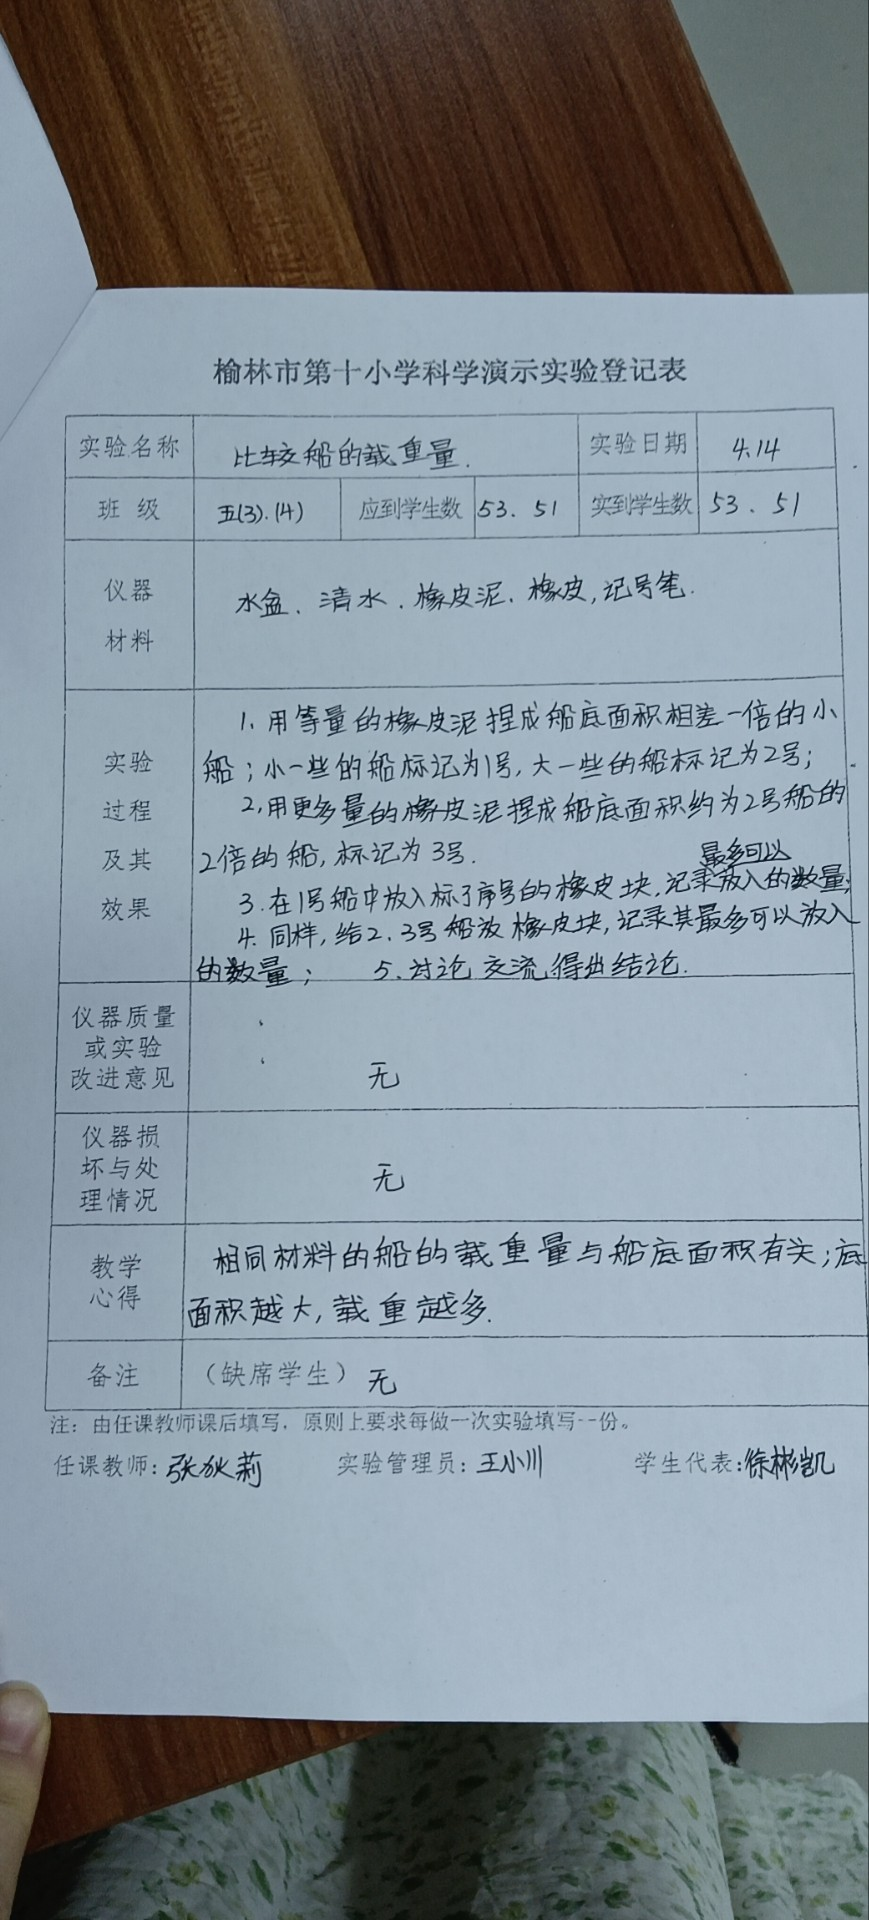 榆林市第十小学科学演示实验登记表
实验名称 比较船的载重量. 实验日期 4.14
班 级 五(3).(4) 应到学生数 53. 51 实到学生数 53. 51
仪器
材料
水盆、清水、橡皮泥、橡皮,记号笔.
实验
过程
及其
效果
1. 用等量的橡皮泥捏成船底面积相差一倍的小
船;小一些的船标记为1号,大一些的船标记为2号;
2,用更多量的橡皮泥捏成船底面积约为2号船的
2倍的船,标记为3号.
最多可以
3.在1号船中放入标了序号的橡皮块,记录放入的数量;
4. 同样,给2、3号船放橡皮块,记录其最多可以放入
的数量; 5.讨论交流,得出结论.
仪器质量
或实验
改进意见
无
仪器损
坏与处
理情况
无
教学
心得
相同材料的船的载重量与船底面积有关;底
面积越大,载重越多.
备注 (缺席学生) 无
注: 由任课教师课后填写, 原则上要求每做一次实验填写一份。
任课教师: 张狄莉 实验管理员: 王小川 学生代表:徐彬凯